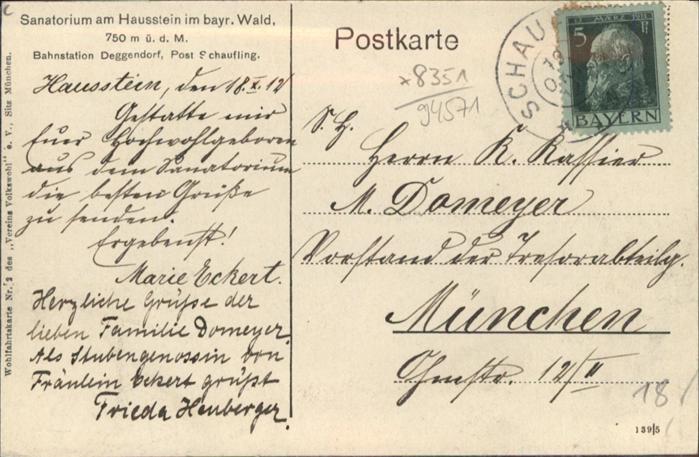 Sanatorium am Hausstein im bayr. Wald,
750 m ü. d. M.
Bahnstation Deggendorf, Post Schaufling.
Wohlfahrtskarte Nr. 2 des „Vereins Volkswohl" e. V., Sitz München.
Hausstein, den 18. X. 12
Gestatte mir
Euer Hochwohlgeboren
aus dem Sanatorium
die besten Grüße
zu senden.
Ergebenst!
Marie Eckert.
Herzliche Grüße der
lieben Familie Domeyer.
Als Stubengenossin von
Fräulein Eckert grüßt
Frieda Heuberger.
Postkarte
*8351
94571
SCHAU
13. MÄRZ 1911
5 Pf
BAYERN
S. H.
Herrn K. Kassier
M. Domeyer
Vorstand der Tresorabteilg.
München
12/II
18
139/5